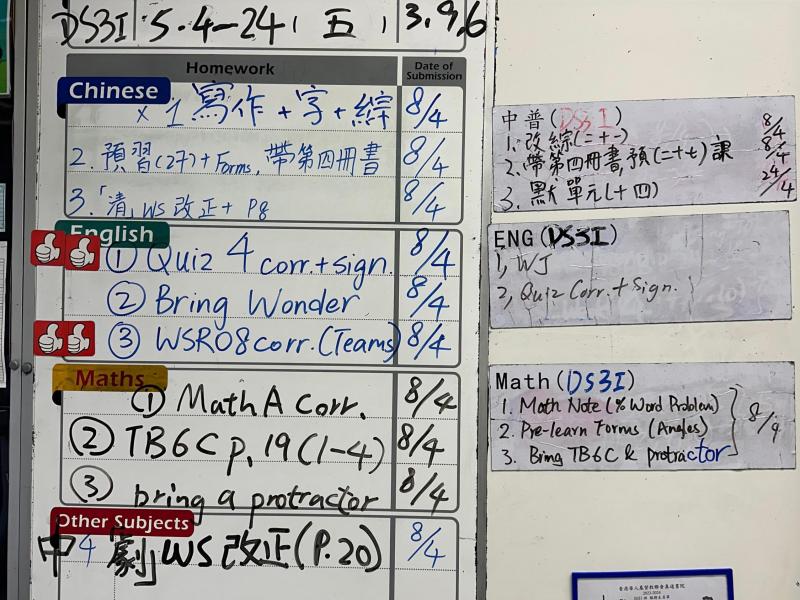 DS3I 5.4-24 (五) 3,9,6
Homework Date of Submission
Chinese
×1 寫作+字+綜 8/4
2. 預習(27)+Forms, 帶第四冊書 8/4
3.「清」WS 改正+P8 8/4
English
① Quiz 4 corr.+sign. 8/4
② Bring Wonder 8/4
③ WSR08 corr. (Teams) 8/4
Maths
① Math A corr. 8/4
② TB6C p. 19 (1-4) 8/4
③ bring a protractor 8/4
Other Subjects
中 4 劇」WS 改正(P.20) 8/4
中普(DS3I)
1. 改綜(二+一) 8/4
2. 帶第四冊書,預(二十七)課 8/4
3. 默單元(十四) 24/4
ENG (DS3I)
1, WJ
2, Quiz Corr. + Sign.
Math (DS3I)
1. Math Note (% Word Problem)
2. Pre-learn Forms (Angles) 8/4
3. Bring TB6C & protractor
香港華人基督教聯會真道書院
2023-2024